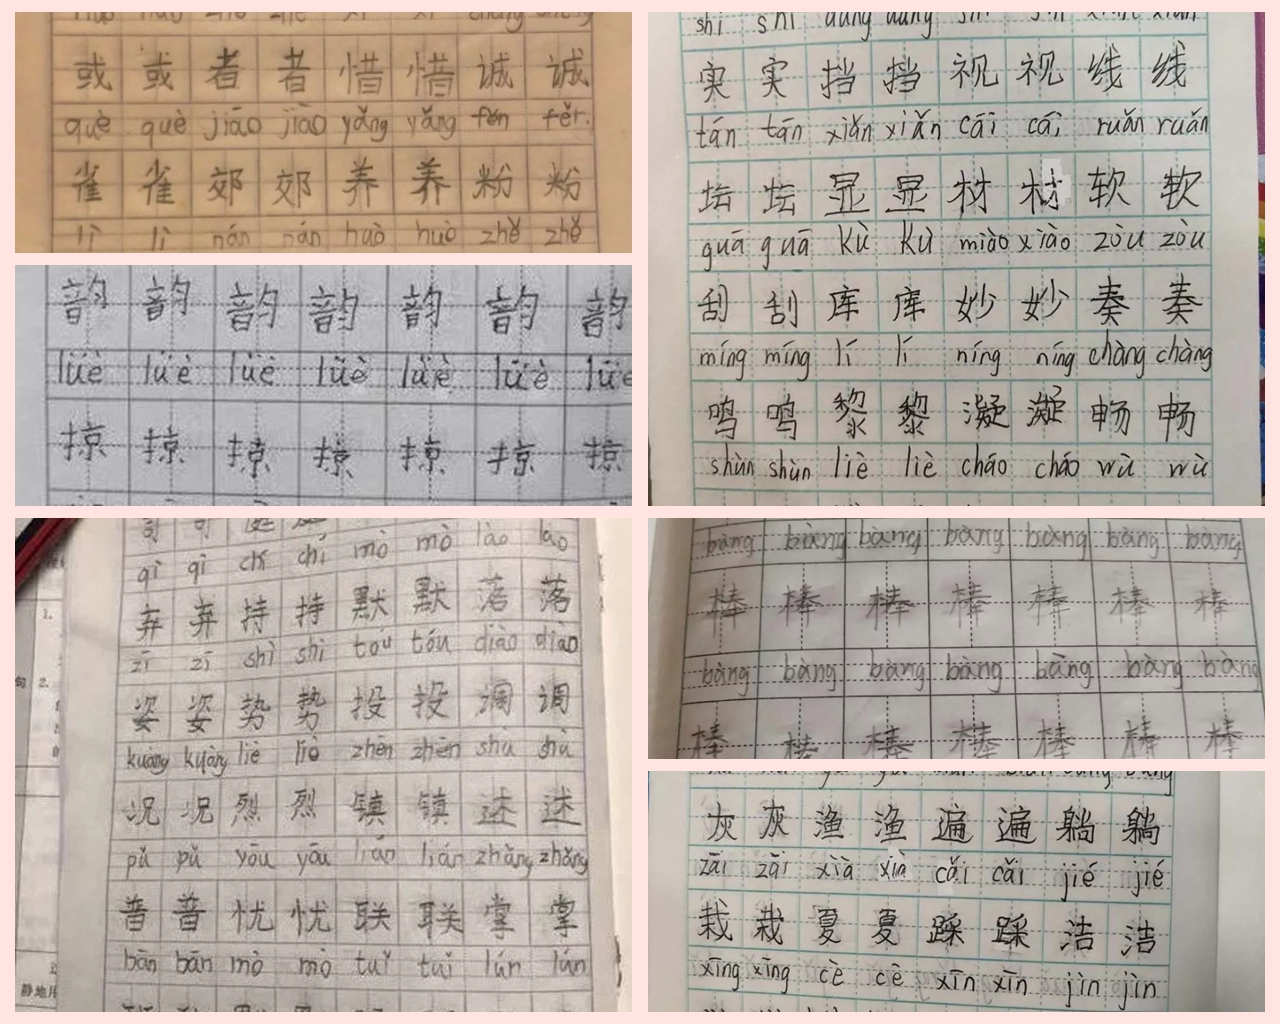 或 或 者 者 惜 惜 诚 诚
què què jiāo jiāo yǎng yǎng fěn fěr.
雀 雀 郊 郊 养 养 粉 粉
lì lì nán nán huò huò zhě zhě
韵 韵 韵 韵 韵 韵 韵
lüè lüè lüè lüè lüè lüè lüè
掠 掠 掠 掠 掠 掠 掠
qì qì chí chí mò mò lào lao
弃 弃 持 持 默 默 落 落
zī zī shì shì tou tóu diào diào
姿 姿 势 势 投 投 调 调
kuàng kuàng liè liè zhèn zhèn shu shù
况 况 烈 烈 镇 镇 述 述
pǔ pǔ yōu yōu lián lián zhǎng zhǎng
普 普 忧 忧 联 联 掌 掌
bān bān mò mò tuǐ tuǐ lún lún
shí shí dǎng dǎng shì shì xiàn xiàn
实 实 挡 挡 视 视 线 线
tán tán xiǎn xiǎn cái cái ruǎn ruǎn
坛 坛 显 显 材 材 软 软
guā guā kù kù miào xiào zòu zòu
刮 刮 库 库 妙 妙 奏 奏
míng míng lí lí níng níng chàng chàng
鸣 鸣 黎 黎 凝 凝 畅 畅
shùn shùn liè liè cháo cháo wù wù
bàng bàng bàng bàng bàng bàng bàng
棒 棒 棒 棒 棒 棒 棒
bàng bàng bàng bàng bàng bàng bàng
棒 棒 棒 棒 棒 棒 棒
灰 灰 渔 渔 遍 遍 躺 躺
zāi zāi xià xià cǎi cǎi jié jié
栽 栽 夏 夏 踩 踩 洁 洁
xīng xīng cè cè xīn xīn jìn jìn